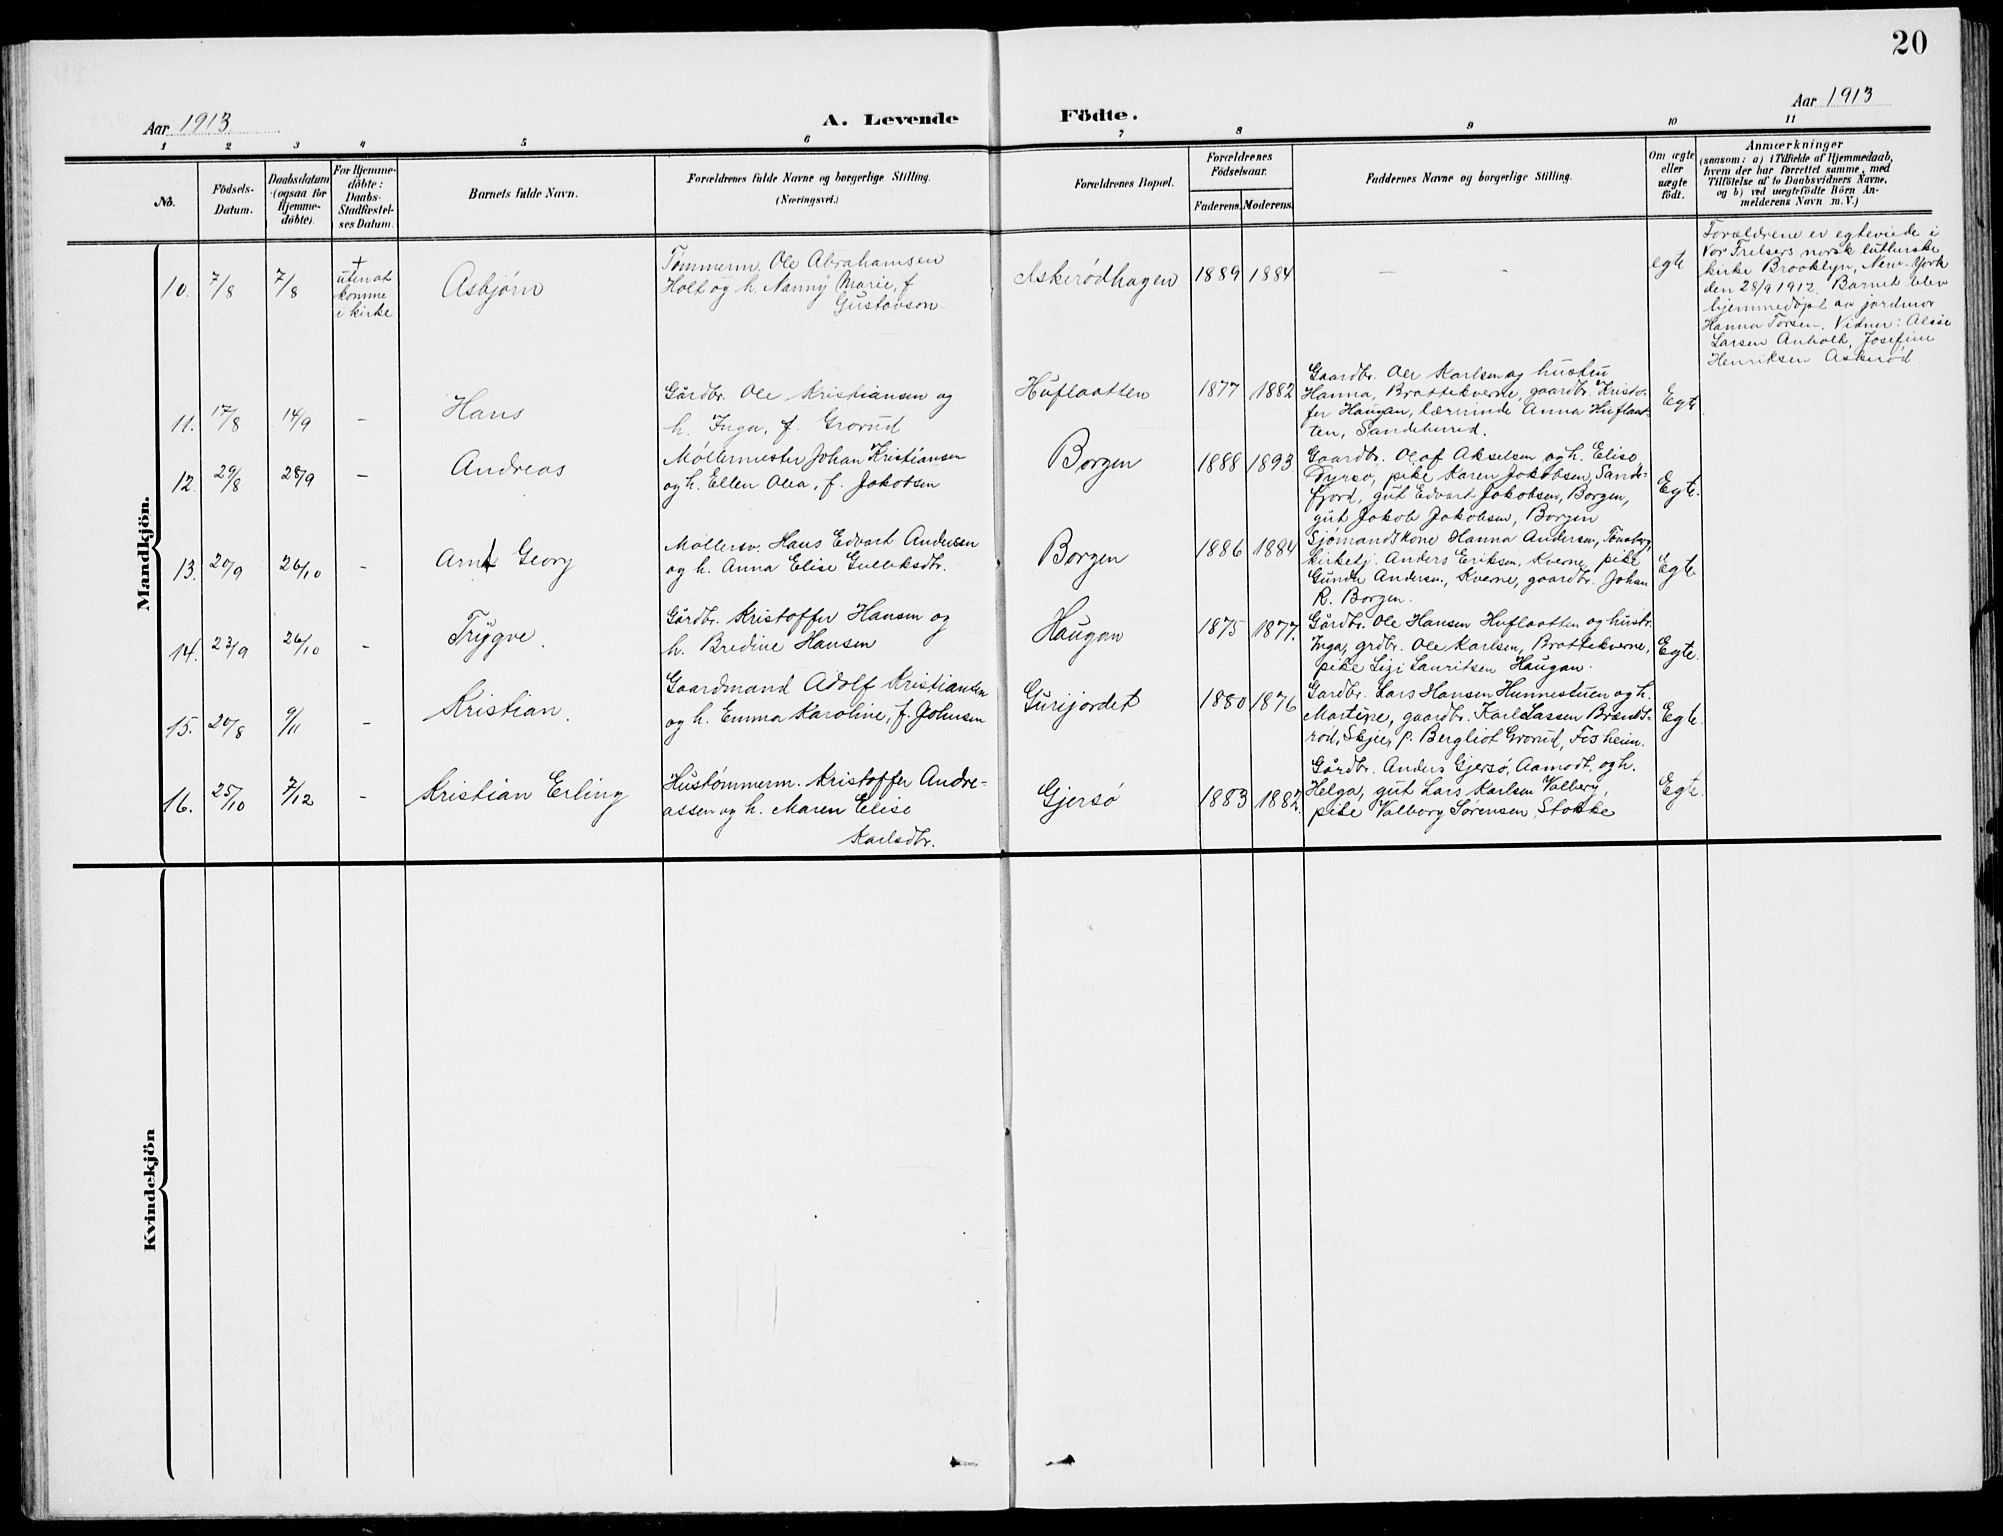 20
Aar 1913
A. Levende Födte.
Aar 1913
1 2 3 4 5 6 7 8 9 10 11
No.
Födsels-
Datum.
Daabsdatum
(ogsaa for
Hjemme-
döbte).
For Hjemme-
döbte:
Daabs-
Stadfæstel-
ses Datum.
Barnets fulde Navn.
Forældrenes fulde Navne og borgerlige Stilling.
(Næringsvei.)
Forældrenes Bopæl.
Forældrenes
Födselsaar.
Faderens. Moderens.
Faddernes Navne og borgerlige Stilling.
Om ægte
eller
uægte
födt.
Anmærkninger
(saasom: a) i Tilfælde af Hjemmedaab,
hvem der har forrettet samme, med
Tilföielse af to Daabsvidners Navne,
og b) ved uægtefödte Börn An-
melderens Navn m. V.)
Mandkjön.
10. 7/8 7/8
+
uten at
komme
i kirke
Asbjørn
Tømmerm. Ole Abrahamsen
Holt og h. Nanny Marie, f
Gustavson
Askerødhagen 1889 1884 - - egte
Forældrene er egteviede i
Vor Frelsers norsk lutherske
kirke Brooklyn, New-York
den 28/9 1912. Barnet blev
hjemmedøpt av jordmor
Hanna Torsen. Vidner: Alsie
Larsen Anholt, Josefine
Henriksen Askerød.
11. 17/8 14/9 - Hans
Gårdbr. Ole Kristiansen og
h. Inga, f. Grorud
Huflaatten 1877 1882
Gaardbr. Ole Karlsen og hustru
Hanna, Brattekverne, gaardbr. Kristof-
fer Haugan, lærerinde Anna Huflaat-
ten, Sandeherred.
Egte
12. 29/8 28/9 - Andreas
Møllermester Johan Kristiansen
og h. Ellen Olea, f. Jakobsen
Borgen 1888 1893
Gaardbr. Olaf Akselsen og h. Elise,
Dyrsø, pike Karen Jakobsen, Sande-
fjord, gut Edvart Jakobsen, Borgen,
gut Jakob Jakobsen, Borgen
Egte.
13. 20/9 26/10 - Arnt Georg
Møllersv. Hans Edvart Andersen
og h. Anna Elise Gulliksdtr.
Borgen 1886 1884
Sjømandskone Hanna Andersen, Tønsberg,
kirketj. Anders Eriksen, Kverne, pike
Gunda Andersen, Kverne, gaardbr. Johan
R. Borgen.
Egte
14. 23/9 26/10 - Trygve.
Gårdbr. Kristoffer Hansen og
h. Bredine Hansen
Haugan 1875 1877.
Gårdbr. Ole Hansen Huflaatten og hustr.
Inga, grdbr. Ole Karlsen, Brattekverne,
pike Lizi Lauritsen Haugan.
Egte.
15. 20/8 9/11 - Kristian.
Gaardmand Adolf Kristiansen
og h. Emma Karoline, f. Johnsen
Gurijordet 1880 1876
Gardbr. Lars Hansen Hunnestuen og h.
Martine, gaardbr. Karl Lassen Brands-
rød, Skjee, p. Bergliot Grorud,
Egte.
16. 25/10 7/12 - Kristian Erling
Hustømmerm. Kristoffer Andre-
assen og h. Maren Elise
Karlsdtr.
Gjersø 1883 1882.
Gårdbr. Anders Gjersø, Aamodt, og h.
Helga, gut Lars Karlsen Valberg,
pike Valborg Sørensen, Stokke
Egte.
Kvindekjön